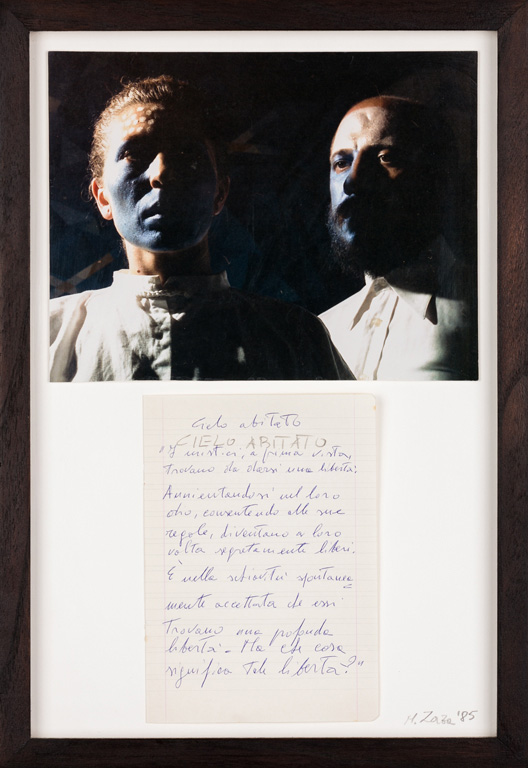 Cielo abitato
CIELO ABITATO
"I mistici, a prima vista,
trovano da darsi una libertà.
Annientandosi nel loro
dio, consentendo alle sue
regole, diventano a loro
volta segretamente liberi.
È nella schiavitù spontanea=
mente accettata che essi
trovano una profonda
libertà - Ma che cosa
significa tale libertà?"
M. Zaza '85